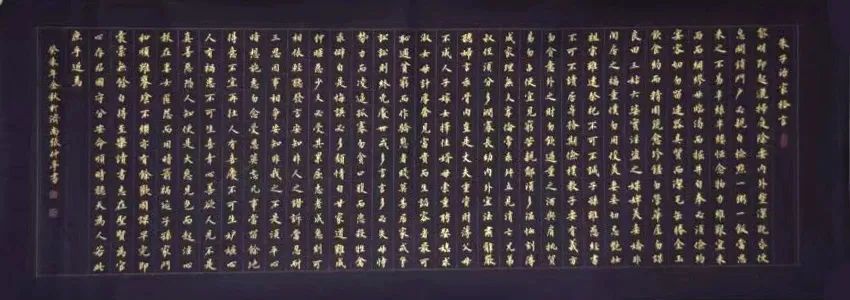 朱子治家格言
黎明即起灑掃庭除要内外整潔既昏便
息關鎖門户必親自檢點一粥一飯當思
來之不易半絲半縷恒念物力維艱宜未
雨而綢繆毋臨渴而掘井自奉必須儉約
宴客切勿留連器具質而潔瓦缶勝金玉
飲食約而精園蔬愈珍饈勿營華屋勿謀
良田三姑六婆實淫盜之媒婢美妾嬌非
閨房之福童僕勿用俊美妻妾切忌艷妝
祖宗雖遠祭祀不可不誠子孫雖愚經書
不可不讀居身務期儉樸教子要有義方
勿貪意外之財勿飲過量之酒與肩挑貿
易勿占便宜見窮苦親鄰須多溫恤刻薄
成家理無久享倫常乖舛立見消亡兄弟
叔侄須分多潤寡長幼内外宜法肅辭嚴
聽婦言乖骨肉豈是丈夫重資財薄父母
不成人子嫁女擇佳婿毋索重聘娶媳求
淑女毋計厚奩見富貴而生諂容者最可
恥遇貧窮而作驕態者賤莫甚居家戒爭
訟訟則終凶處世戒多言言多必失毋恃
勢力而凌逼孤寡勿貪口腹而恣殺牲禽
乖僻自是悔誤必多頹惰自甘家道難成
狎昵惡少久必受其累屈志老成急則可
相依輕聽發言安知非人之譖訴當忍耐
三思因事相爭安知非我之不是須平心
暗想施惠勿念受恩莫忘凡事當留餘地
得意不宜再往人有喜慶不可生妒嫉心
人有禍患不可生喜幸心善欲人見不是
真善惡恐人知便是大惡見色而起淫心
報在妻女匿怨而用暗箭禍延子孫家門
和順雖饔飧不繼亦有餘歡國課早完即
囊橐無餘自得至樂讀書志在聖賢爲官
心存君國守分安命順時聽天爲人若此
庶乎近焉
癸未年金秋於濟南張仲亭書